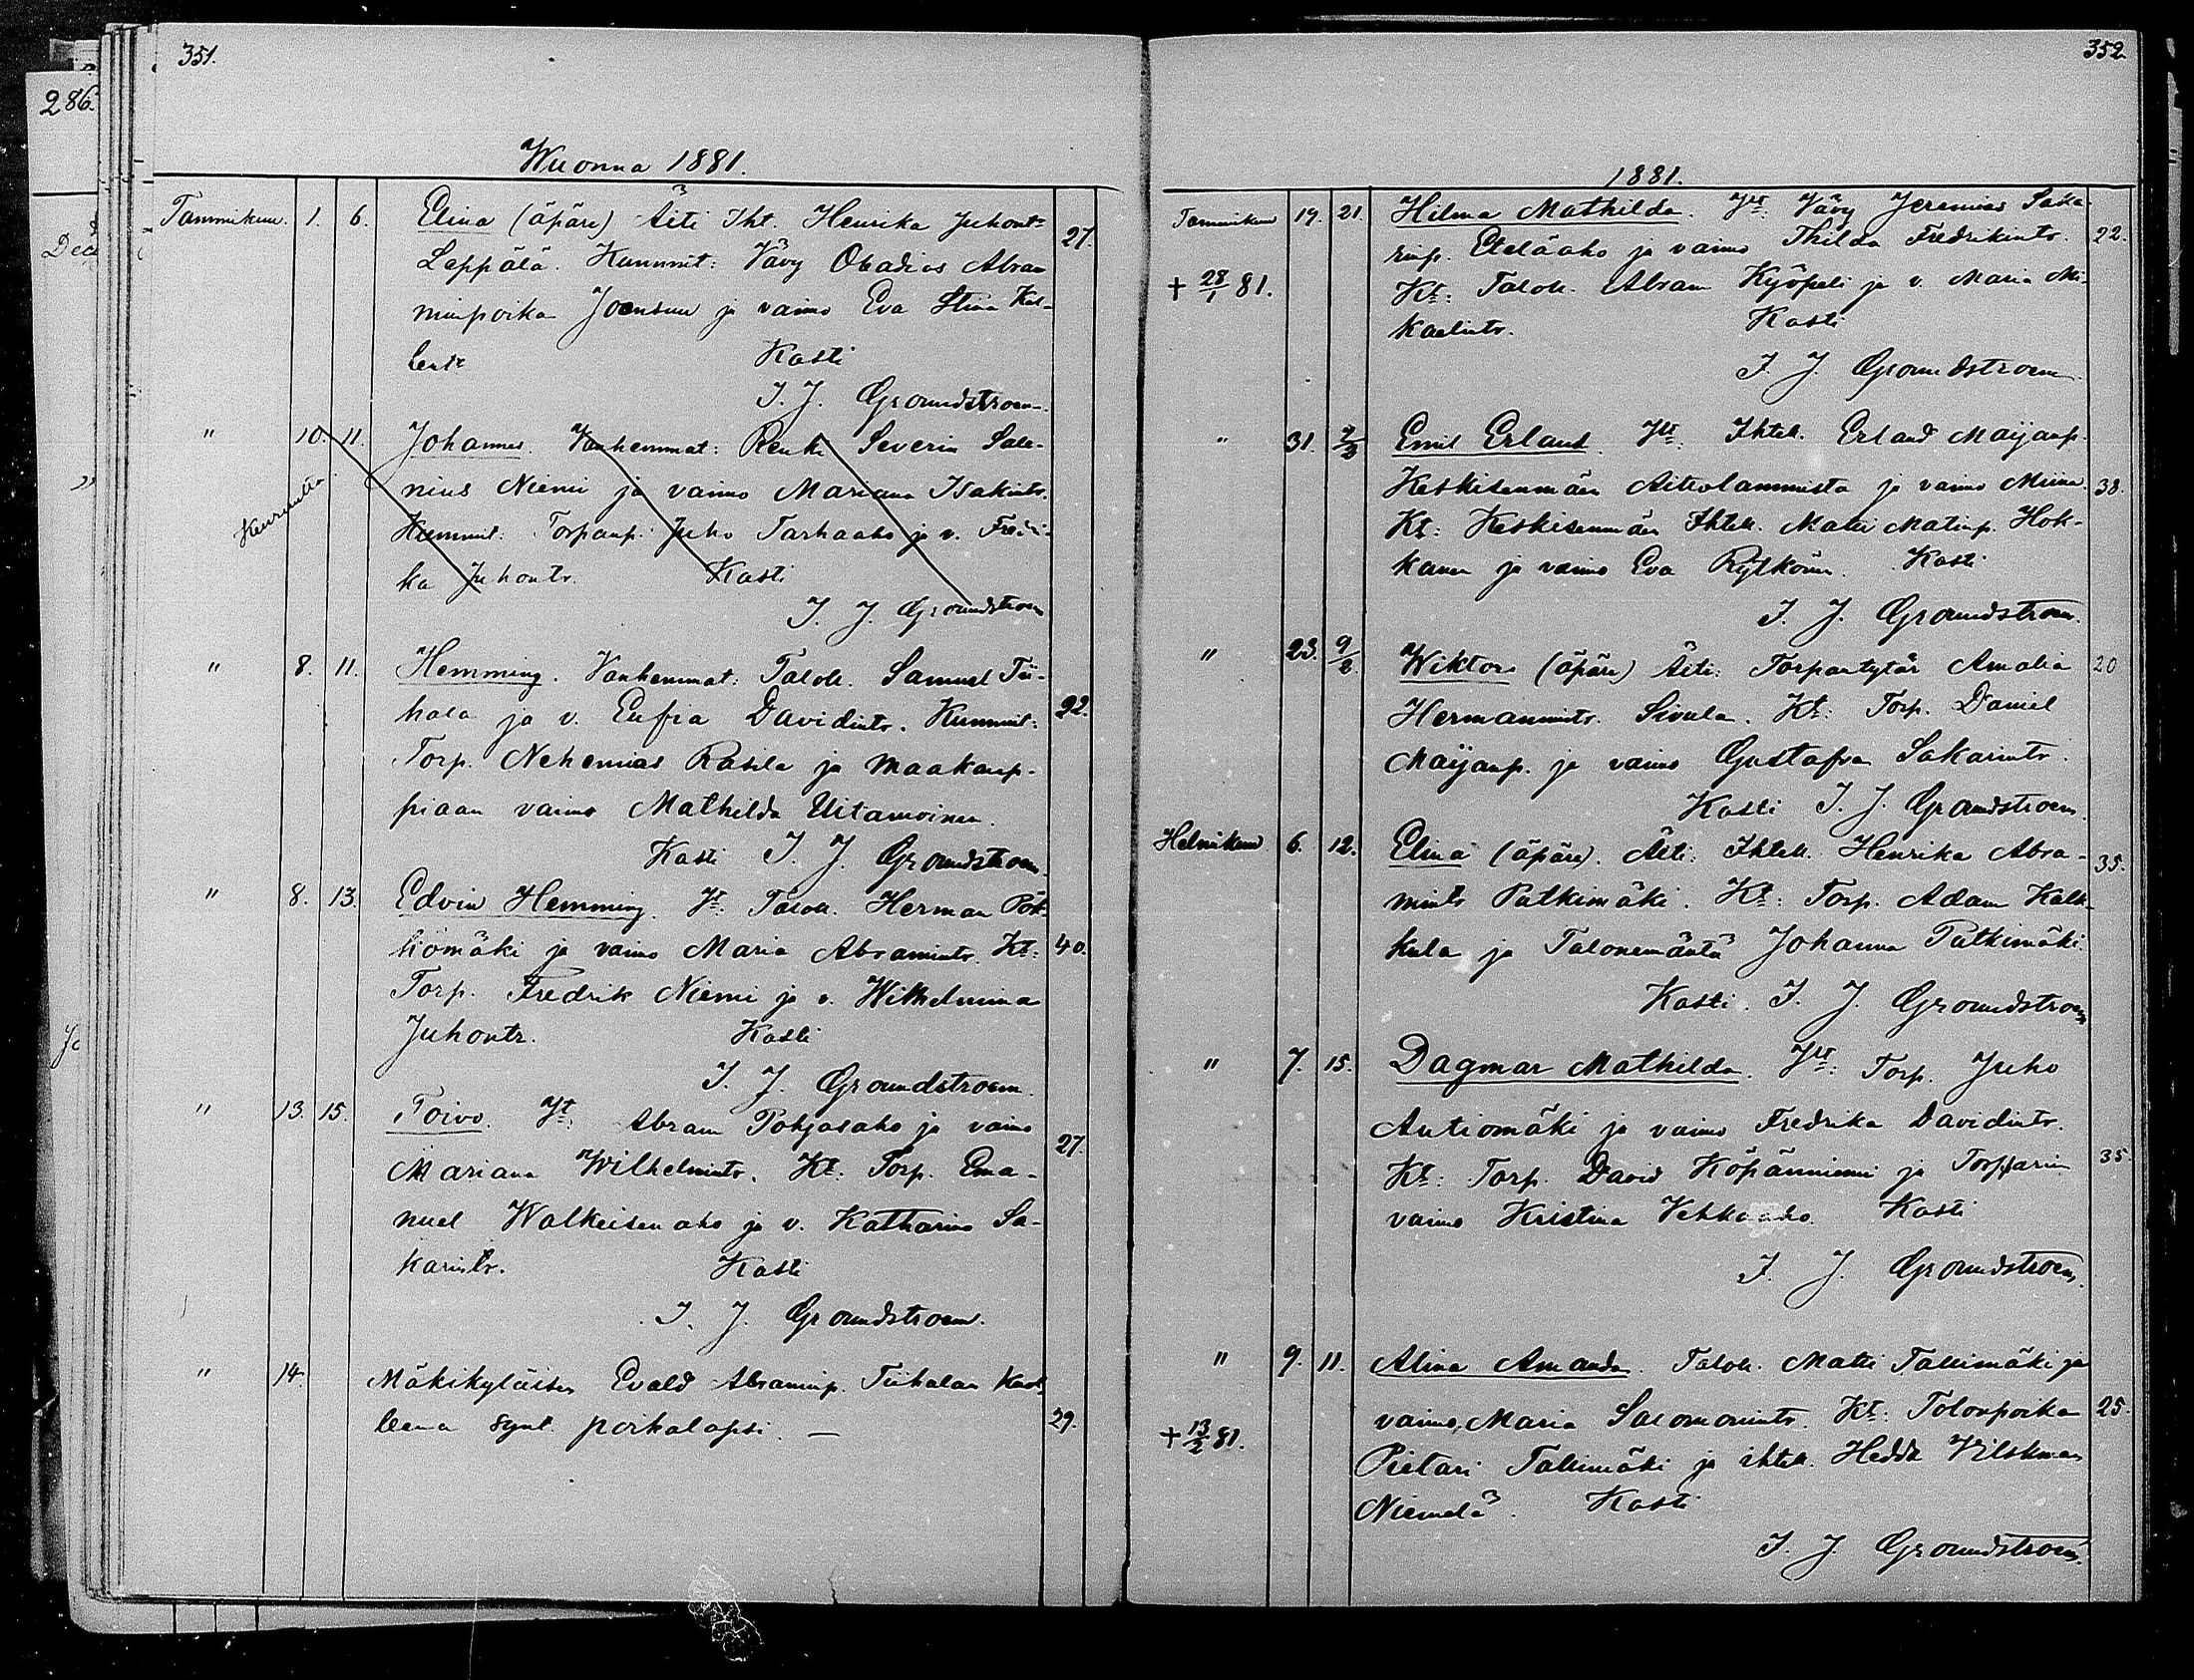 351.
286.
Wuonna 1881.
Tammikuu. 1. 6. Elina (äpärä) Äiti Iht. Henrika Juhont-
Leppälä. Kummit: Vävy Obadias Abra
minpoika Joensuu ja vaimo Eva Stina Kal-
lentr Kasti 27.
I. J. Groundstroem.
" 10. 11. Johannes. Vanhemmat: Renki Severin Sale-
nius Niemi ja vaimo Mariana Isakintr.
Keuruulta
Kummit: Torpanp. Juho Tarhaaho ja v. Fredri-
ka Juhontr. Kasti
I. J. Groundstroem
" 8. 11. Hemming. Vanhemmat: Talol. Samuel Tii-
hala ja v. Eufia Davidintr. Kummit: 22.
Torp. Nehemias Rasila ja maakaup-
piaan vaimo Mathilda Uitamoinen.
Kasti I. J. Groundstroem.
" 8. 13. Edvin Hemming. Vt: Talol. Herman Pöl-
kiömäki ja vaimo Maria Abramintr. Kt: 40.
Torp. Fredrik Niemi ja v. Wilhelmina
Juhontr. Kasti
I. J. Groundstroem.
" 13. 15. Toivo. Vt: Abram Pohjasaho ja vaimo
Mariana Wilhelmintr. Kt: Torp. Ema- 27.
nuel Walkeisenaho ja v. Katharina Sa-
karintr. Kasti
I. J. Groundstroem.
" 14. Mäkikyläisen Evald Abraminp. Tiihalan
leena synt. poikalapsi. — 29.
352.
1881.
Tammikuu 19. 21. Hilma Mathilda. Vt: Vävy Jeremias Saka-
rinp. Eteläaho ja vaimo Thilda Fredrikintr. 22.
+ 28/1 81. Kt: Talol. Abram Kyöpeli ja v. Maria Mi-
kaelintr. Kasti
I. J. Groundstroem.
" 31. 2/2 Emil Erland. Vt: Ihtel. Erland Maijanp.
Keskisenmäen Aitvolammista ja vaimo Miina. 38.
Kt: Keskisenmäen Ihtel. Matti Matinp. Hok-
kanen ja vaimo Eva Rytkönen. Kasti
I. J. Groundstroem.
" 23. 9/2 Wiktor (äpärä) Äiti: Torpantytär Amalia 20
Hermannintr. Sivula. Kt: Torp. Daniel
Maijanp. ja vaimo Gustafva Sakarintr.
Kasti I. J. Groundstroem.
Helmikuu 6. 12. Elina (äpärä). Äiti: Ihtel. Henrika Abra- 35.
mintr Putkimäki. Kt: Torp. Adam Kalk-
kula ja Talonemäntä Johanna Putkimäki
Kasti. I. J. Groundstroem
" 7. 15. Dagmar Mathilda. Vt: Torp. Juho
Autiomäki ja vaimo Fredrika Davidintr.
Kt: Torp. David Köpänniemi ja Torpparin 35
vaimo Kristina Vehkaaho. Kasti
I. J. Groundstroem.
" 9. 11. Alina Amanda. Talol. Matti Tallimäki ja
vaimo, Maria Salomonintr. Kt: Talonpoika 25.
+ 13/2 81.
Pietari Tallimäki ja ihtel. Hedda Vilskman
Niemelä. Kasti
I. J. Groundstroem.